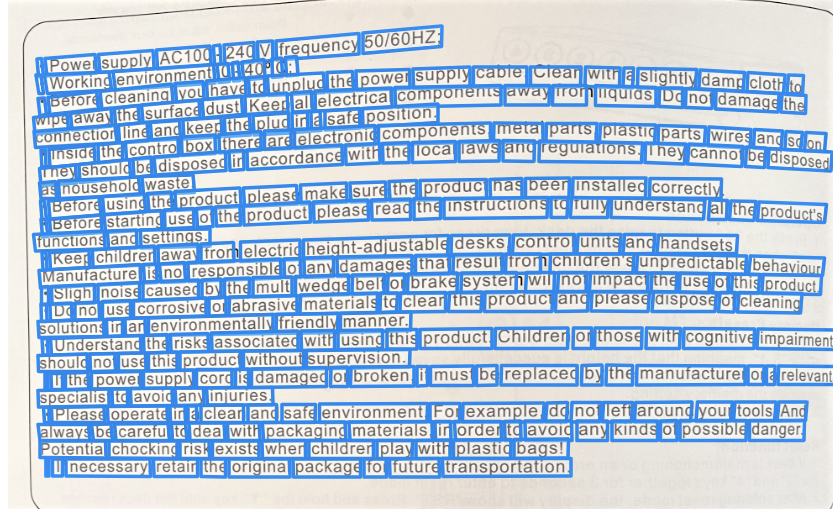 * Power supply AC100-240 V, frequency 50/60HZ;
* Working environment: 0-40°C;
* Before cleaning you have to unplug the power supply cable. Clean with a slightly damp cloth to
wipe away the surface dust. Keep all electrical components away from liquids. Do not damage the
connection line and keep the plug in a safe position.
* Inside the control box there are electronic components, metal parts, plastic parts, wires and so on.
They should be disposed in accordance with the local laws and regulations. They cannot be disposed
as household waste.
* Before using the product, please make sure the product has been installed correctly.
* Before starting use of the product, please read the instructions to fully understand all the product's
functions and settings.
* Keep children away from electric height-adjustable desks, control units and handsets.
Manufacture is no responsible of any damages that result from children's unpredictable behaviour.
* Sligh noise caused by the mult wedge belt or brake system will not impact the use of this product.
* Do no use corrosive or abrasive materials to clean this product and please dispose of cleaning
solutions in an environmentally friendly manner.
* Understand the risks associated with using this product. Children or those with cognitive impairment
should not use this product without supervision.
* If the power supply cord is damaged or broken, it must be replaced by the manufacturer or a relevant
specialist to avoid any injuries.
* Please operate in a clear and safe environment. For example, do not left around your tools. And
always be careful to deal with packaging materials, in order to avoid any kinds of possible danger.
Potential chocking risk exists when children play with plastic bags!
* If necessary retain the original package for future transportation.